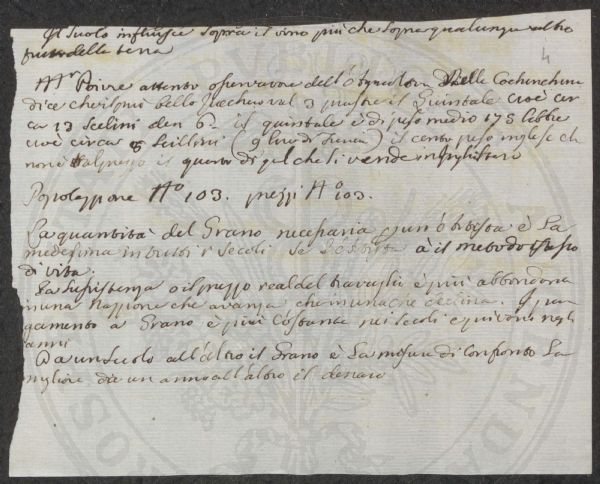 Il Suolo influisce sopra il vino più che sopra qualunque altro
frutto della terra
4
Mr Poivre attento osservatore dell' Agricoltura della Cochinchina
dice che il più bello Zucchero val 3 piastre il Quintale cioè cir
ca 13 Scelini den 6. il quintale è di peso medio 175 libbre
cioè circa 8 Scillini ( 9 lire di Francia ) il cento peso inglese ch
non è al prezzo il quarto di quel che si vende in Inghilterra
Popolazzione No 103. prezzi No 103.
La quantità del Grano necessaria è La
medesima in tutti i Secoli se è il metodo stesso
di vita.
La sussistenza o il prezzo real del travaglio è più abbondante
in una Nazzione che avanza che in una che declina. Il pa
gamento a Grano è più Costante nei secoli e più negli
anni
Da un Secolo all'altro il Grano è La misura di Confronto La
migliore da un anno all'altro il denaro